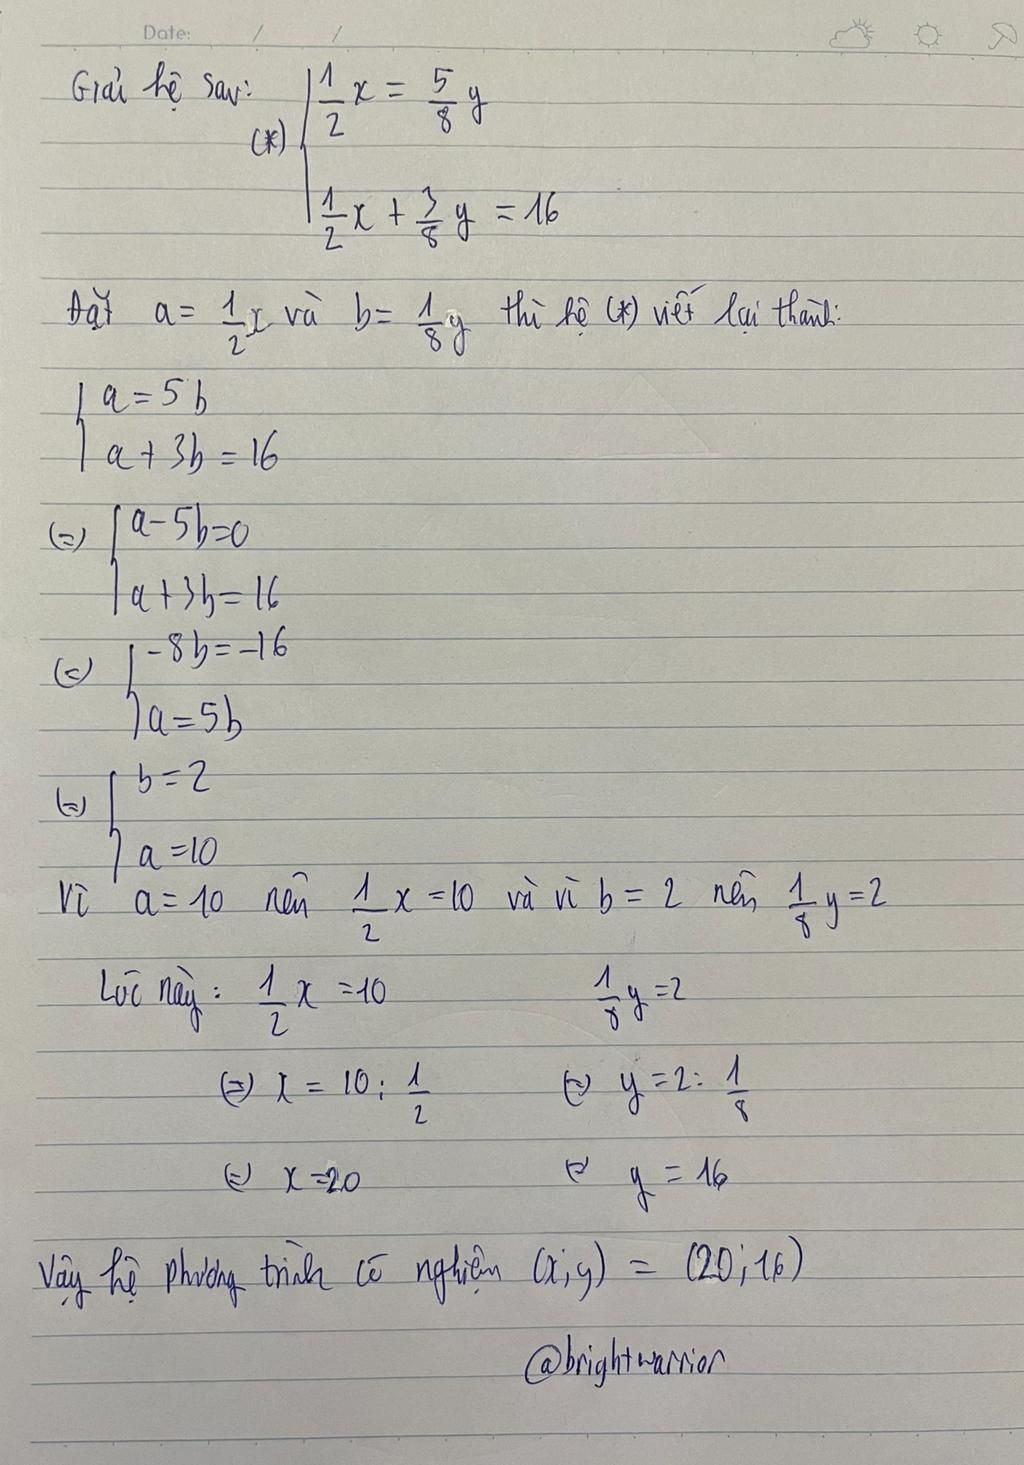 Date: / /
Giải hệ sau: (*) { 1/2 x = 5/8 y
1/2 x + 3/8 y = 16
Đặt a = 1/2 x và b = 1/8 y thì hệ (*) viết lại thành:
{ a = 5b
a + 3b = 16
(=) { a - 5b = 0
a + 3b = 16
(=) { -8b = -16
a = 5b
(=) { b = 2
a = 10
Vì a = 10 nên 1/2 x = 10 và vì b = 2 nên 1/8 y = 2
Lúc này: 1/2 x = 10 1/8 y = 2
(=) x = 10 : 1/2 (=) y = 2 : 1/8
(=) x = 20 (=) y = 16
Vậy hệ phương trình có nghiệm (x;y) = (20;16)
@brightwarrior